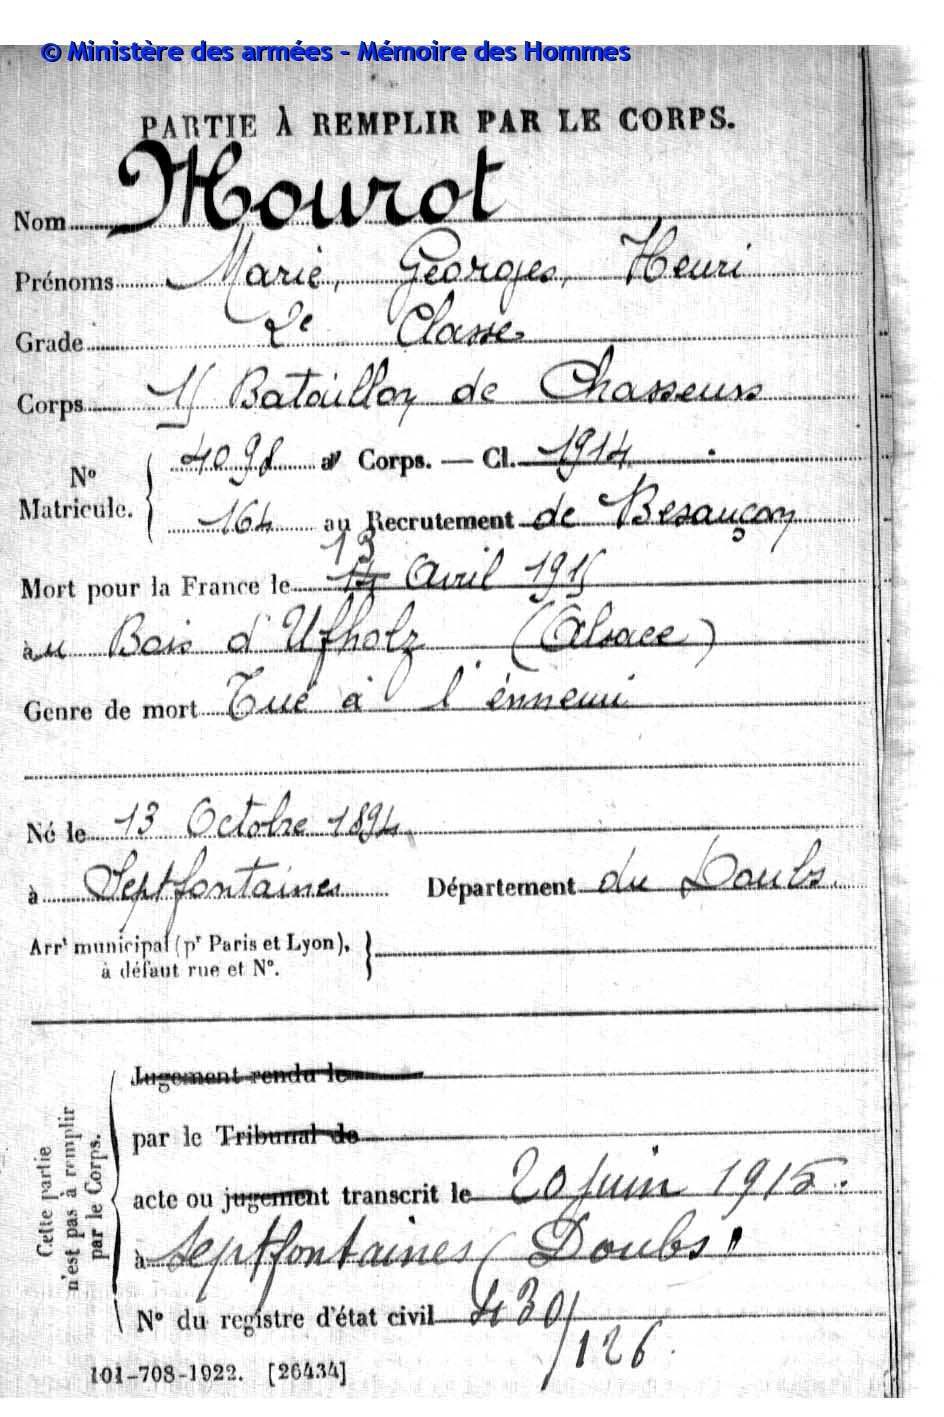 © Ministère des armées - Mémoire des Hommes
PARTIE À REMPLIR PAR LE CORPS.
Nom Mourot
Prénoms Marie, Georges, Henri
Grade 2e Classe
Corps 15 Bataillon de Chasseurs
No Matricule. 4098 au Corps. — Cl. 1914
164 au Recrutement de Besançon
13
Mort pour la France le 14 Avril 1915
au Bois d'Ufholz (Alsace)
Genre de mort Tué à l'énnemi
Né le 13 Octobre 1894
à Septfontaines Département du Doubs
Arrt municipal (pr Paris et Lyon),
à défaut rue et No.
Cette partie
n'est pas à remplir
par le Corps.
Jugement rendu le
par le Tribunal de
acte ou jugement transcrit le 20 juin 1915.
à Septfontaines (Doubs)
No du registre d'état civil 430/
126
101-708-1922. [26434]